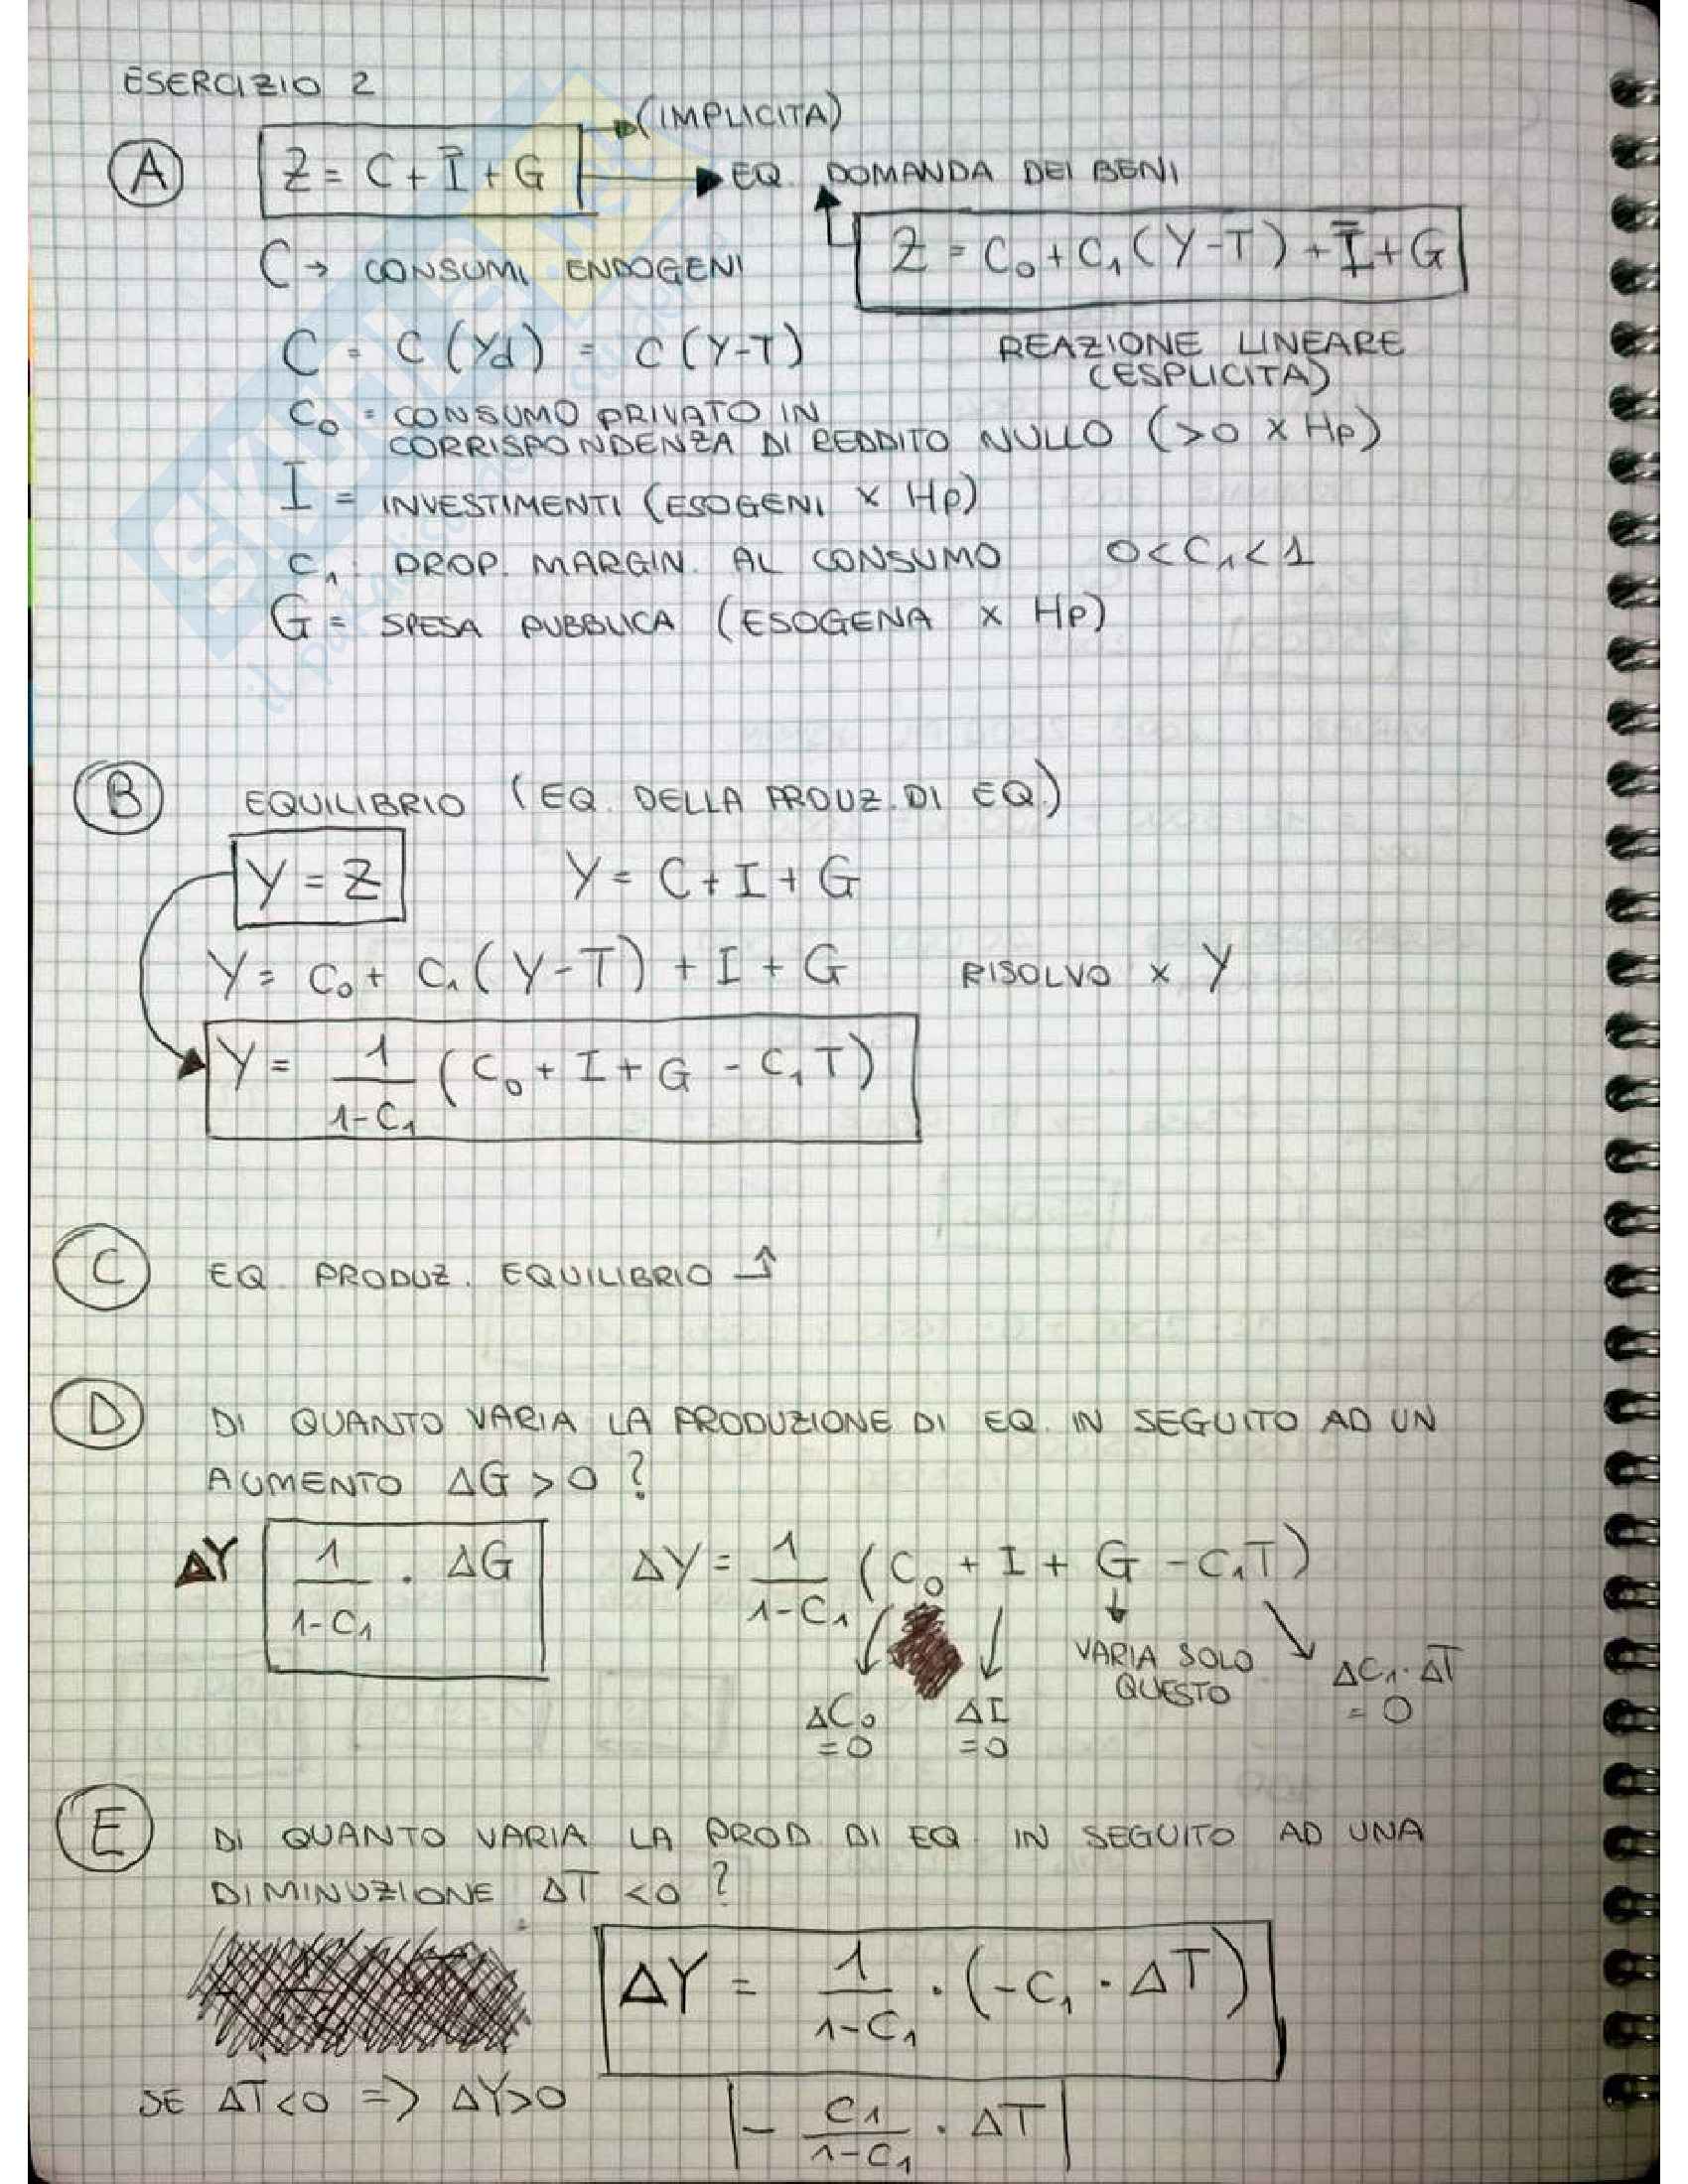 ESERCIZIO 2
(IMPLICITA)
A Z = C + Ī + G EQ. DOMANDA DEI BENI
Z = C₀ + C₁ (Y-T) + Ī + G
C → CONSUMI ENDOGENI
C = C (Yd) = C (Y-T) REAZIONE LINEARE
(ESPLICITA)
C₀ = CONSUMO PRIVATO IN
CORRISPONDENZA DI REDDITO NULLO (>0 x Hp)
I = INVESTIMENTI (ESOGENI x Hp)
C₁ : PROP. MARGIN. AL CONSUMO 0 < C₁ < 1
G = SPESA PUBBLICA (ESOGENA x Hp)
B EQUILIBRIO (EQ. DELLA PRODUZ. DI EQ.)
Y = Z Y = C + I + G
Y = C₀ + C₁ (Y-T) + I + G RISOLVO x Y
Y = 1/(1-C₁) (C₀ + I + G - C₁T)
C EQ. PRODUZ. EQUILIBRIO
D DI QUANTO VARIA LA PRODUZIONE DI EQ. IN SEGUITO AD UN
AUMENTO ΔG > 0 ?
ΔY 1/(1-C₁) · ΔG ΔY = 1/(1-C₁) (C₀ + I + G - C₁T)
VARIA SOLO
QUESTO
ΔC₁ · ΔT
= 0
ΔC₀
= 0
ΔI
= 0
E DI QUANTO VARIA LA PROD. DI EQ. IN SEGUITO AD UNA
DIMINUZIONE ΔT < 0 ?
ΔY = 1/(1-C₁) · (-C₁ · ΔT)
SE ΔT<0 => ΔY>0
- C₁/(1-C₁) · ΔT